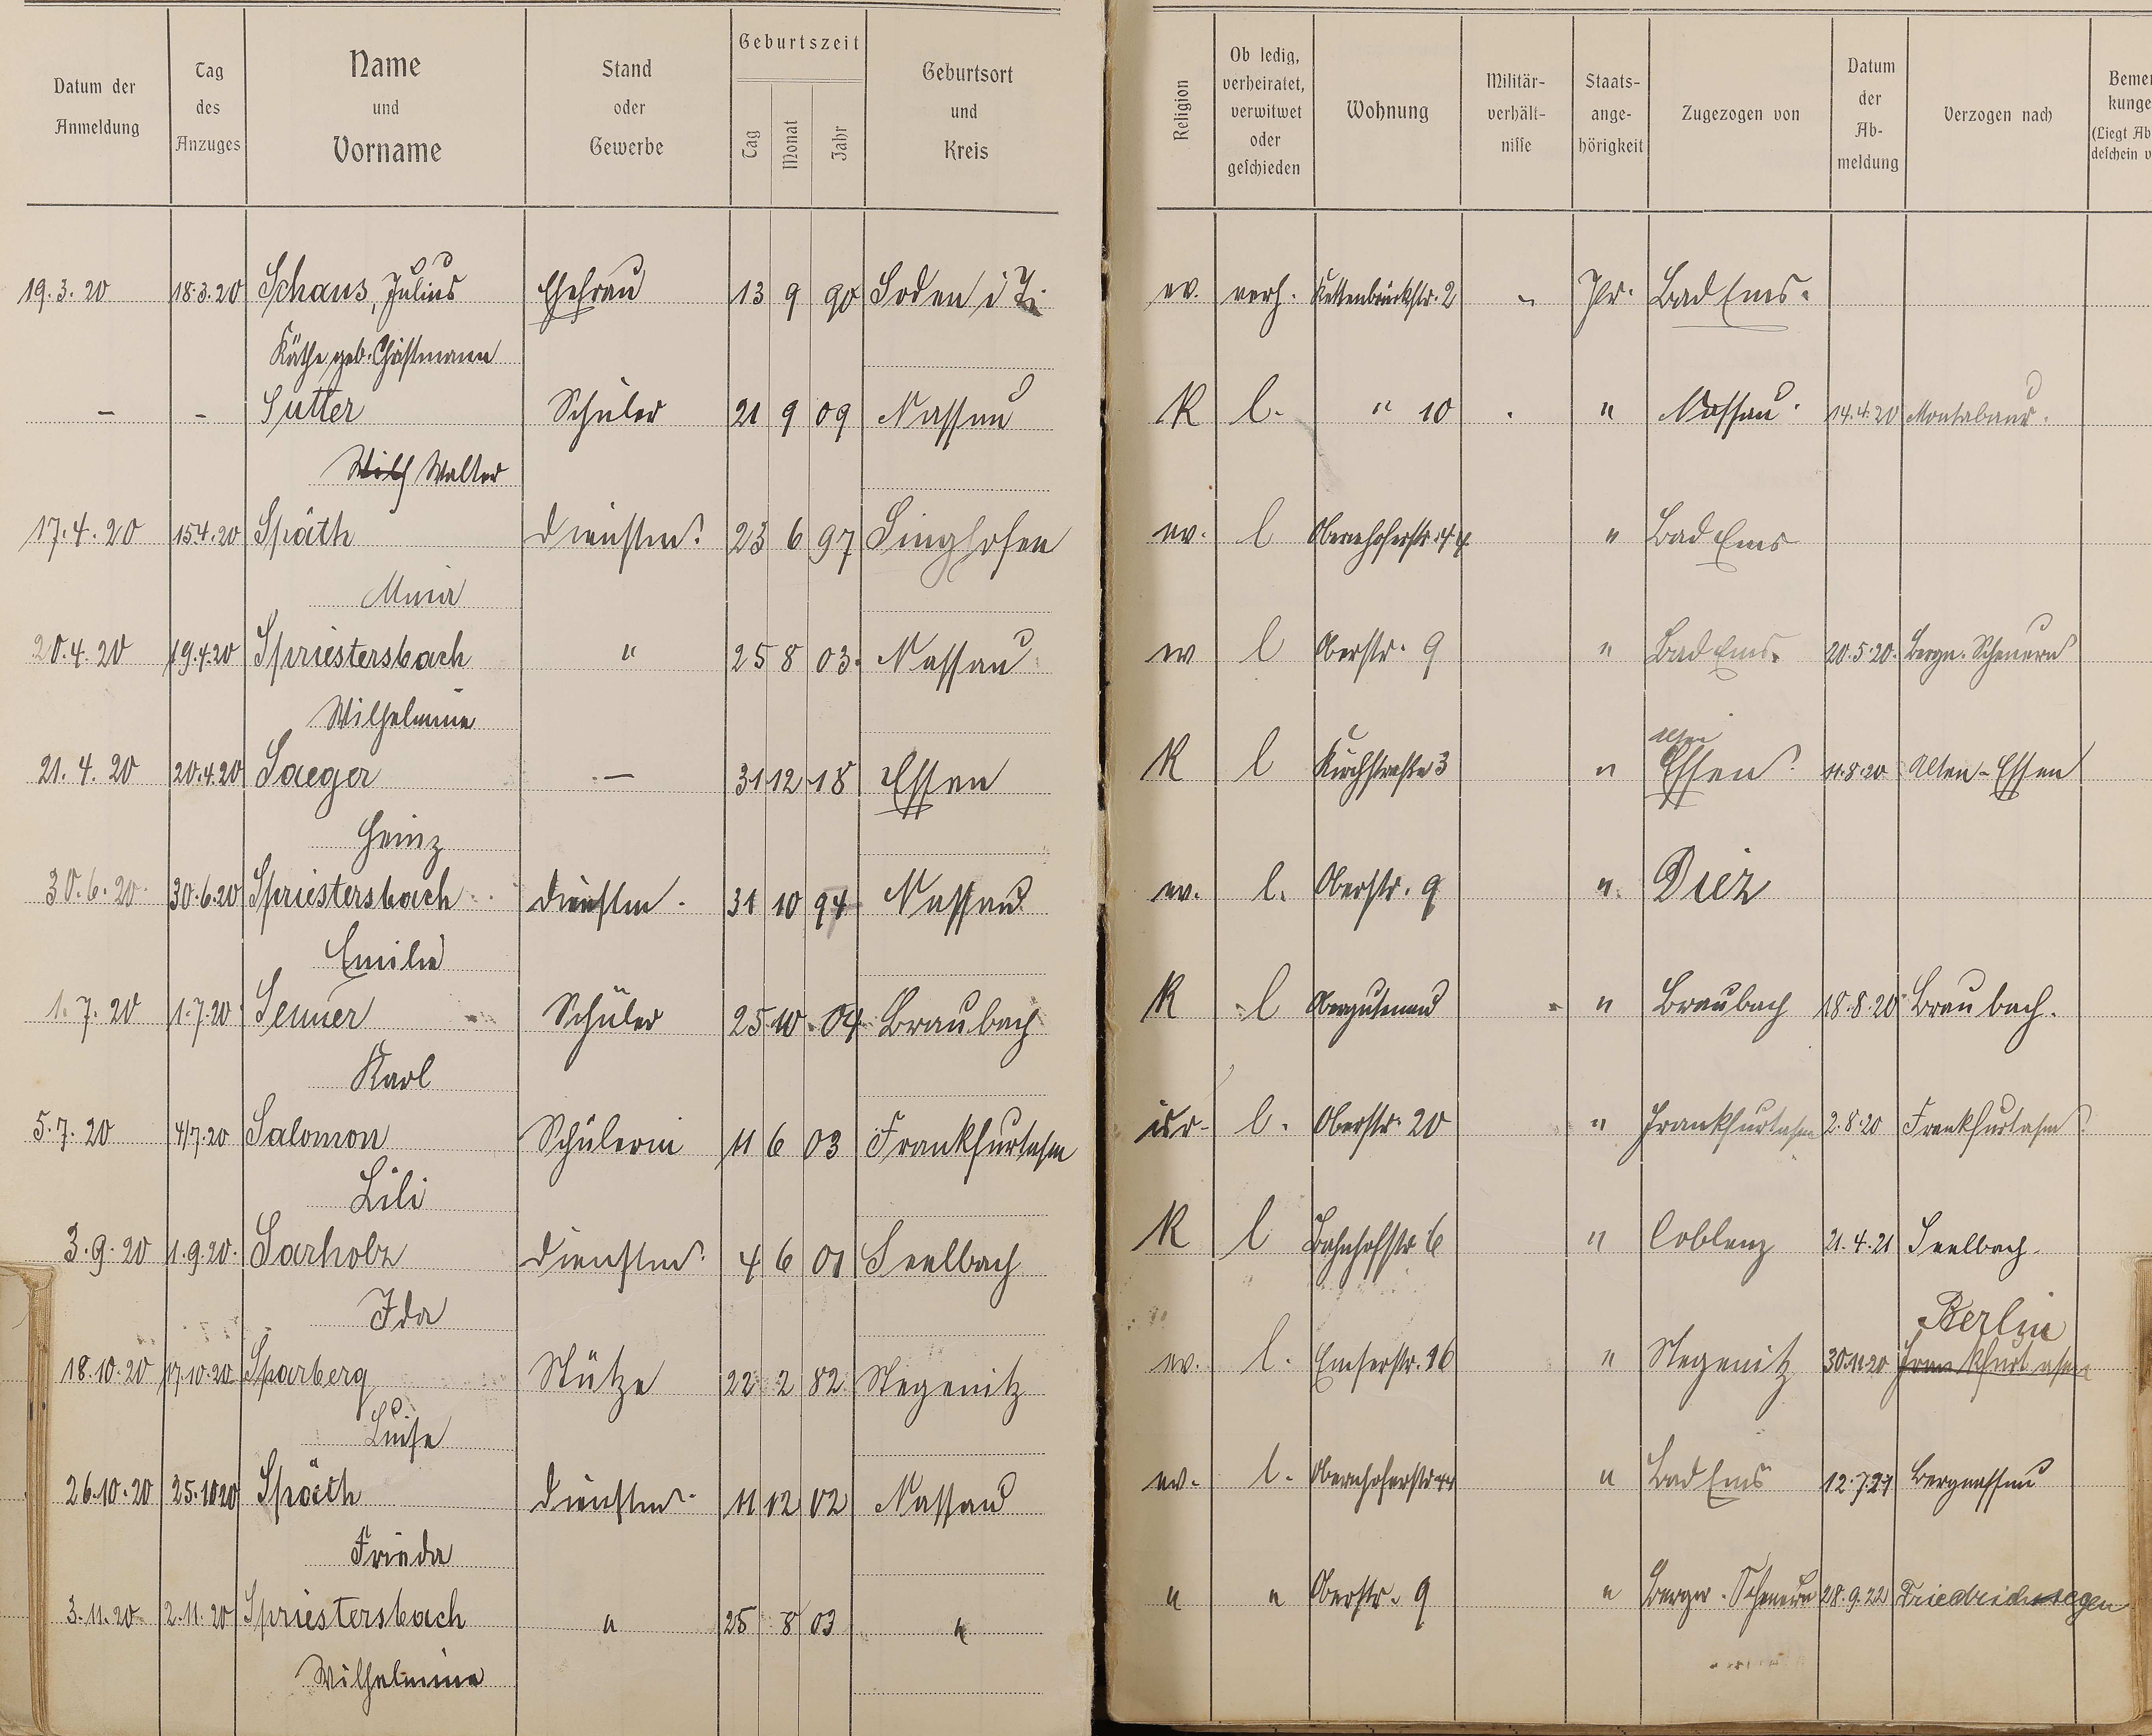 Datum der Anmeldung | Tag des Anzuges | Name und Vorname | Stand oder Gewerbe | Geburtszeit Tag Monat Jahr | Geburtsort und Kreis | Religion | Ob ledig, verheiratet, verwitwet oder geschieden | Wohnung | Militär-verhält-nisse | Staats-ange-hörigkeit | Zugezogen von | Datum der Ab-meldung | Verzogen nach | Bemer kunge (Liegt Ab deschein v
19.3.20 18.3.20 Schaus, Julius Ehefrau 13 9 90 Soden i T. ev. verh. Kettenbrückstr. 2 " Pr. Bad Ems.
Käthe geb. Christmann
– – Sutter Schüler 21 9 09 Nassau K l. " 10 " Nassau 14.4.20 Montabaur.
Walter
17.4.20 15.4.20 Späth Dienstm. 23 6 97 Singhofen ev. l Obernhoferstr. 44 " Bad Ems
Mina
20.4.20 19.4.20 Spriestersbach " 25 8 03. Nassau ev l Oberstr. 9 " Bad Ems. 20.5.20. Bergn. Scheuern
Wilhelmine
21.4.20 20.4.20 Saeger – 31 12 18 Essen K l Kirchstraße 3 " Alten Essen 11.8.20 Alten-Essen
Heinz
30.6.20. 30.6.20 Spriestersbach Dienstm. 31 10 94 Nassau ev. l. Oberstr. 9 " Diez
Emilie
1.7.20 1.7.20 Schüler 25 10 04 Braubach K l " Braubach 18.8.20 Braubach.
Karl
5.7.20 4/7.20 Salomon Schülerin 11 6 03 Frankfurt a/m isr. l. Oberstr. 20 " Frankfurt a/m 2.8.20 Frankfurt a/m
Lili
3.9.20 1.9.20. Sarholz Dienstm. 4 6 01 Seelbach K l Bahnhofstr 6 " Coblenz 21.4.21 Seelbach.
Ida
Berlin
18.10.20 17.10.20 Sparberg Stütze 22 2 82 Stegenitz ev. l. Emserstr. 16 " Stegenitz 30.11.20 Frankfurt a/m
Luise
26.10.20 25.10.20 Späth Dienstm. 11 12 02 Nassau ev. l. Obernhoferstr 44 " Bad Ems 12.7.21 Bergnassau
Frieda
3.11.20 2.11.20 Spriestersbach " 25 8 03 " " " Oberstr. 9 " Bergn. Scheuern 28.9.22 Friedrichssegen
Wilhelmine